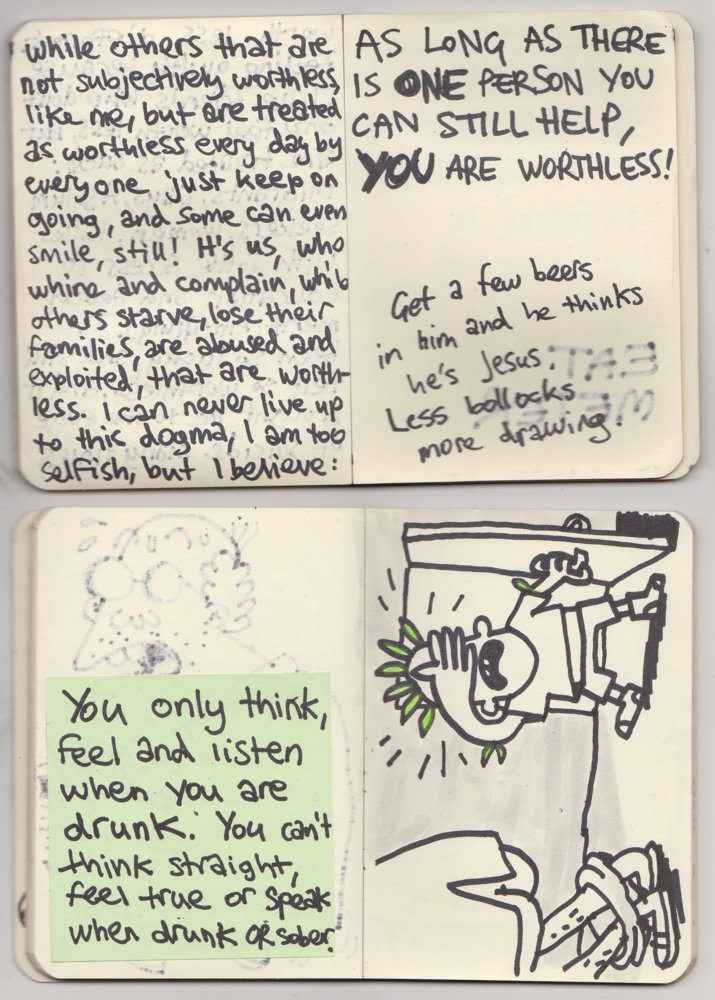 while others that are
not subjectively worthless,
like me, but are treated
as worthless every day by
everyone just keep on
going, and some can even
smile, still! It's us, who
whine and complain, while
others starve, lose their
families, are abused and
exploited, that are worth-
less. I can never live up
to this dogma, I am too
selfish, but I believe:
AS LONG AS THERE
IS ONE PERSON YOU
CAN STILL HELP,
YOU ARE WORTHLESS!
Get a few beers
in him and he thinks
he's Jesus.
Less bollocks
more drawing.
You only think,
feel and listen
when you are
drunk. You can't
think straight,
feel true or speak
when drunk OR sober.